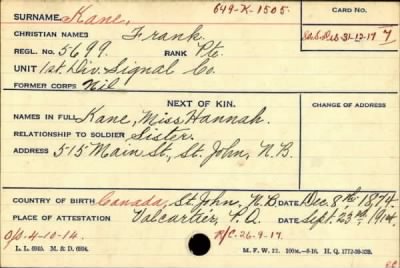 649-K-1505.
SURNAME. Kane,
CARD NO.
CHRISTIAN NAMES Frank.
31-12-17 7
REGL. NO. 5699. RANK Pte.
UNIT 1st Div. Signal Co.
FORMER CORPS Nil
NEXT OF KIN. CHANGE OF ADDRESS
NAMES IN FULL Kane, Miss Hannah.
RELATIONSHIP TO SOLDIER Sister.
ADDRESS 515 Main St, St. John, N.B.
COUNTRY OF BIRTH Canada, St. John, N.B. DATE Dec. 8th 1874
PLACE OF ATTESTATION Valcartier, P.Q. DATE Sept. 23rd 1914.
O/S. 4-10-14. R/C. 26-9-17.
L. L. 6940. M. & D. 6934. M. F. W. 12. H. Q. 1772-39-339.